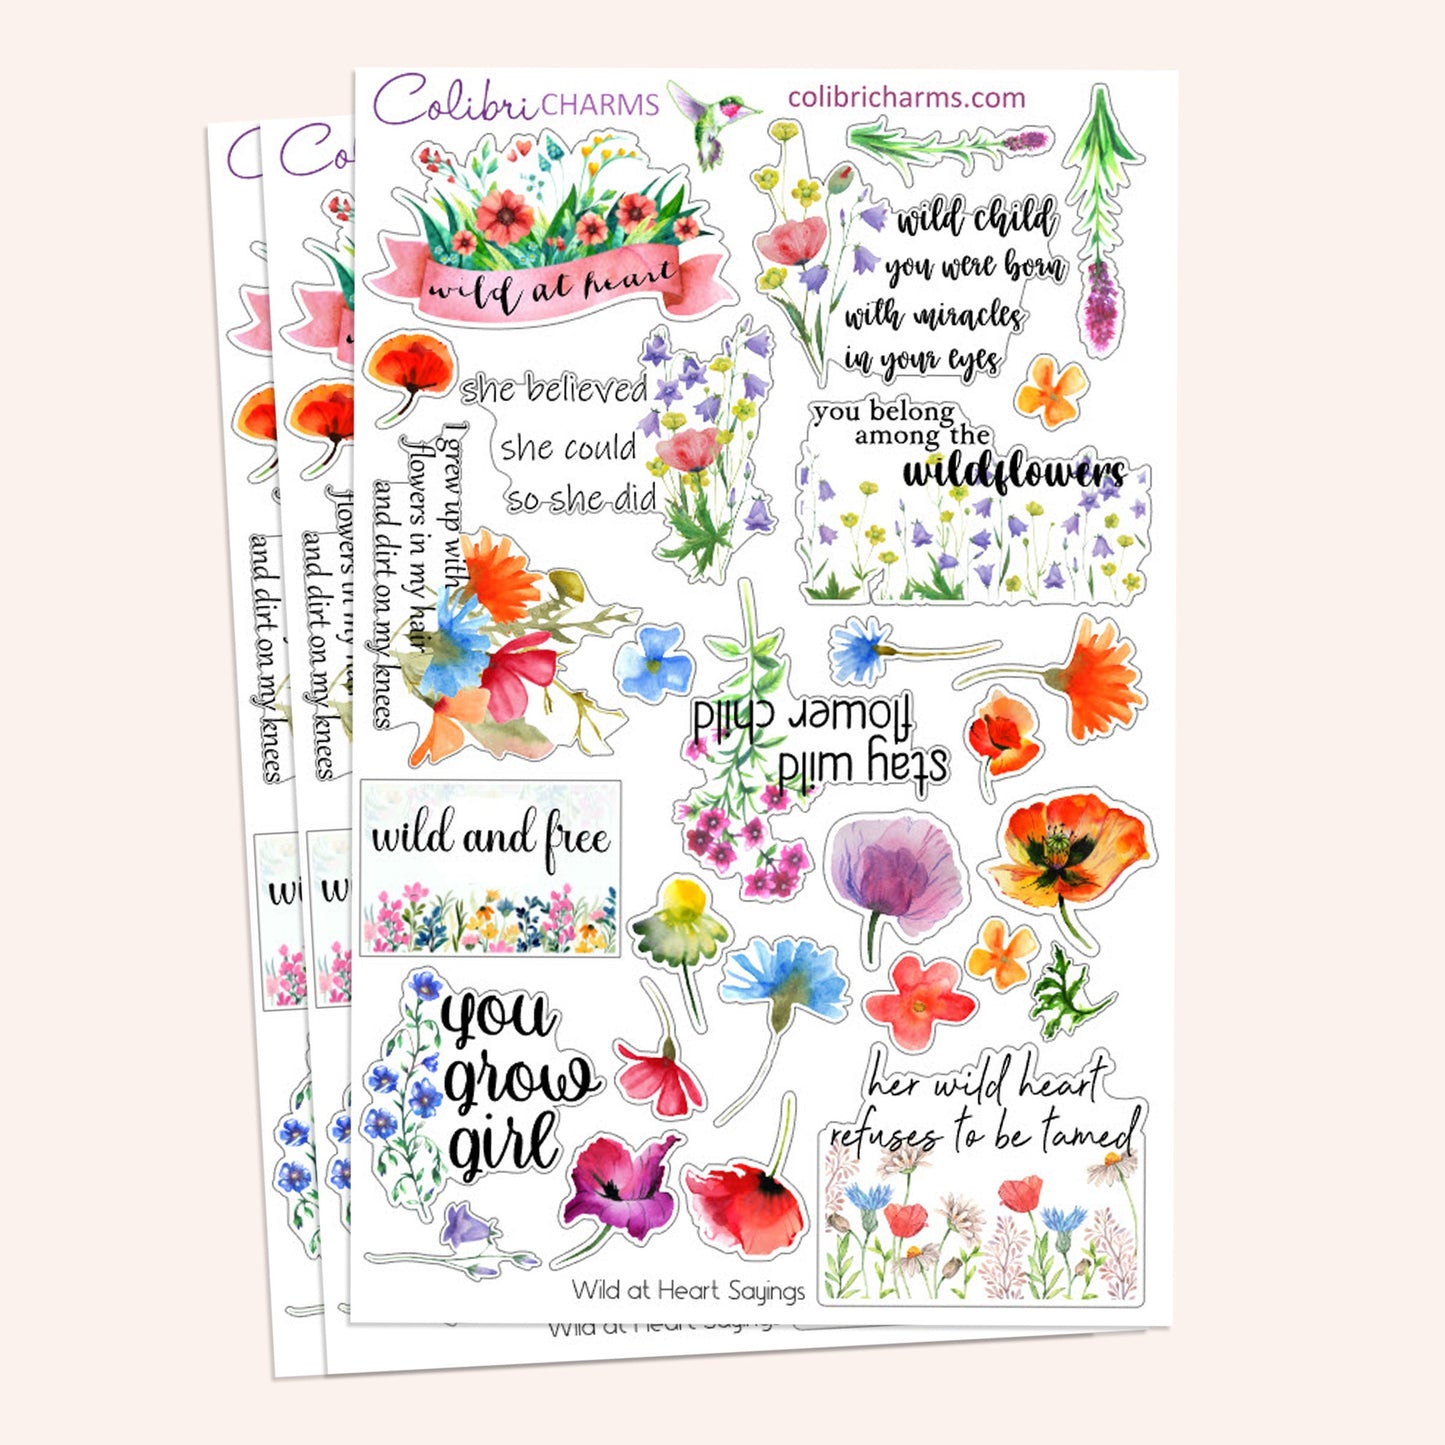 Colibri CHARMS
colibricharms.com
wild at heart
wild child
you were born
with miracles
in your eyes
she believed
she could
so she did
you belong
among the
wildflowers
I grew up with
flowers in my hair
and dirt on my knees
stay wild
flower child
wild and free
you
grow
girl
her wild heart
refuses to be tamed
Wild at Heart Sayings
Co
flowers in my hair
and dirt on my knees
and dirt on my knees
wi
w
Wild at Heart Sayings